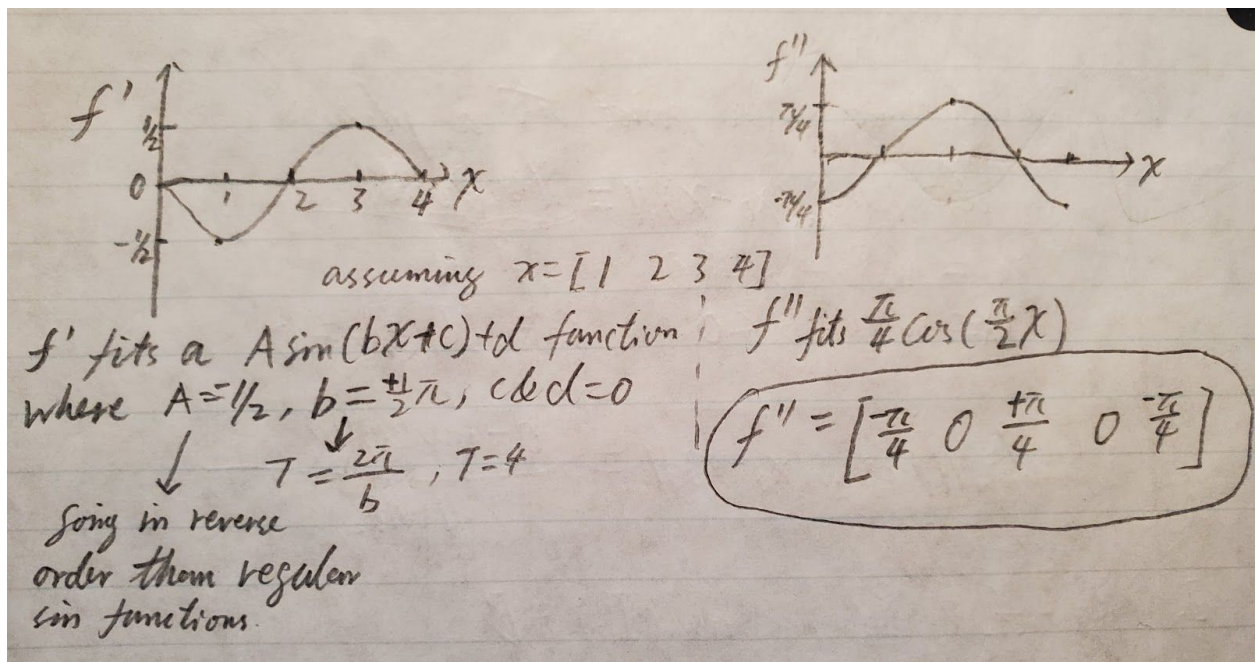 f'
1/2
0
1 2 3 4 x
-1/2
f''
π/4
x
-π/4
assuming x=[1 2 3 4]
f' fits a A sin(bx+c)+d function
where A=-1/2, b=+1/2 π, c&d=0
T=2π/b, T=4
going in reverse
order than regular
sin functions.
f'' fits π/4 cos(π/2 x)
f''=[-π/4 0 +π/4 0 -π/4]